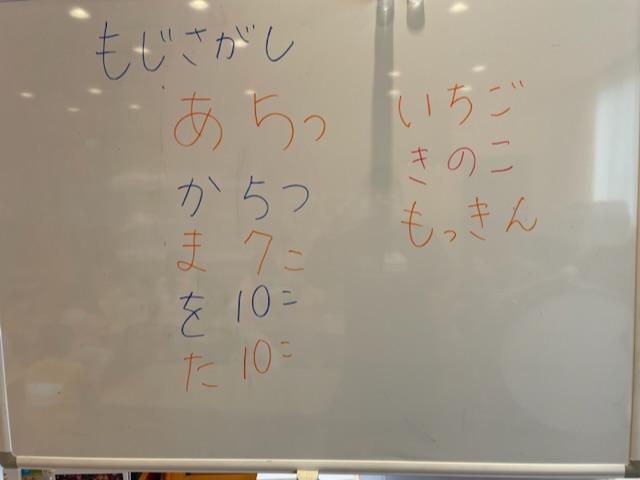 もじさがし
あ 5つ
か 5つ
ま 7こ
を 10こ
た 10こ
いちご
きのこ
もっきん